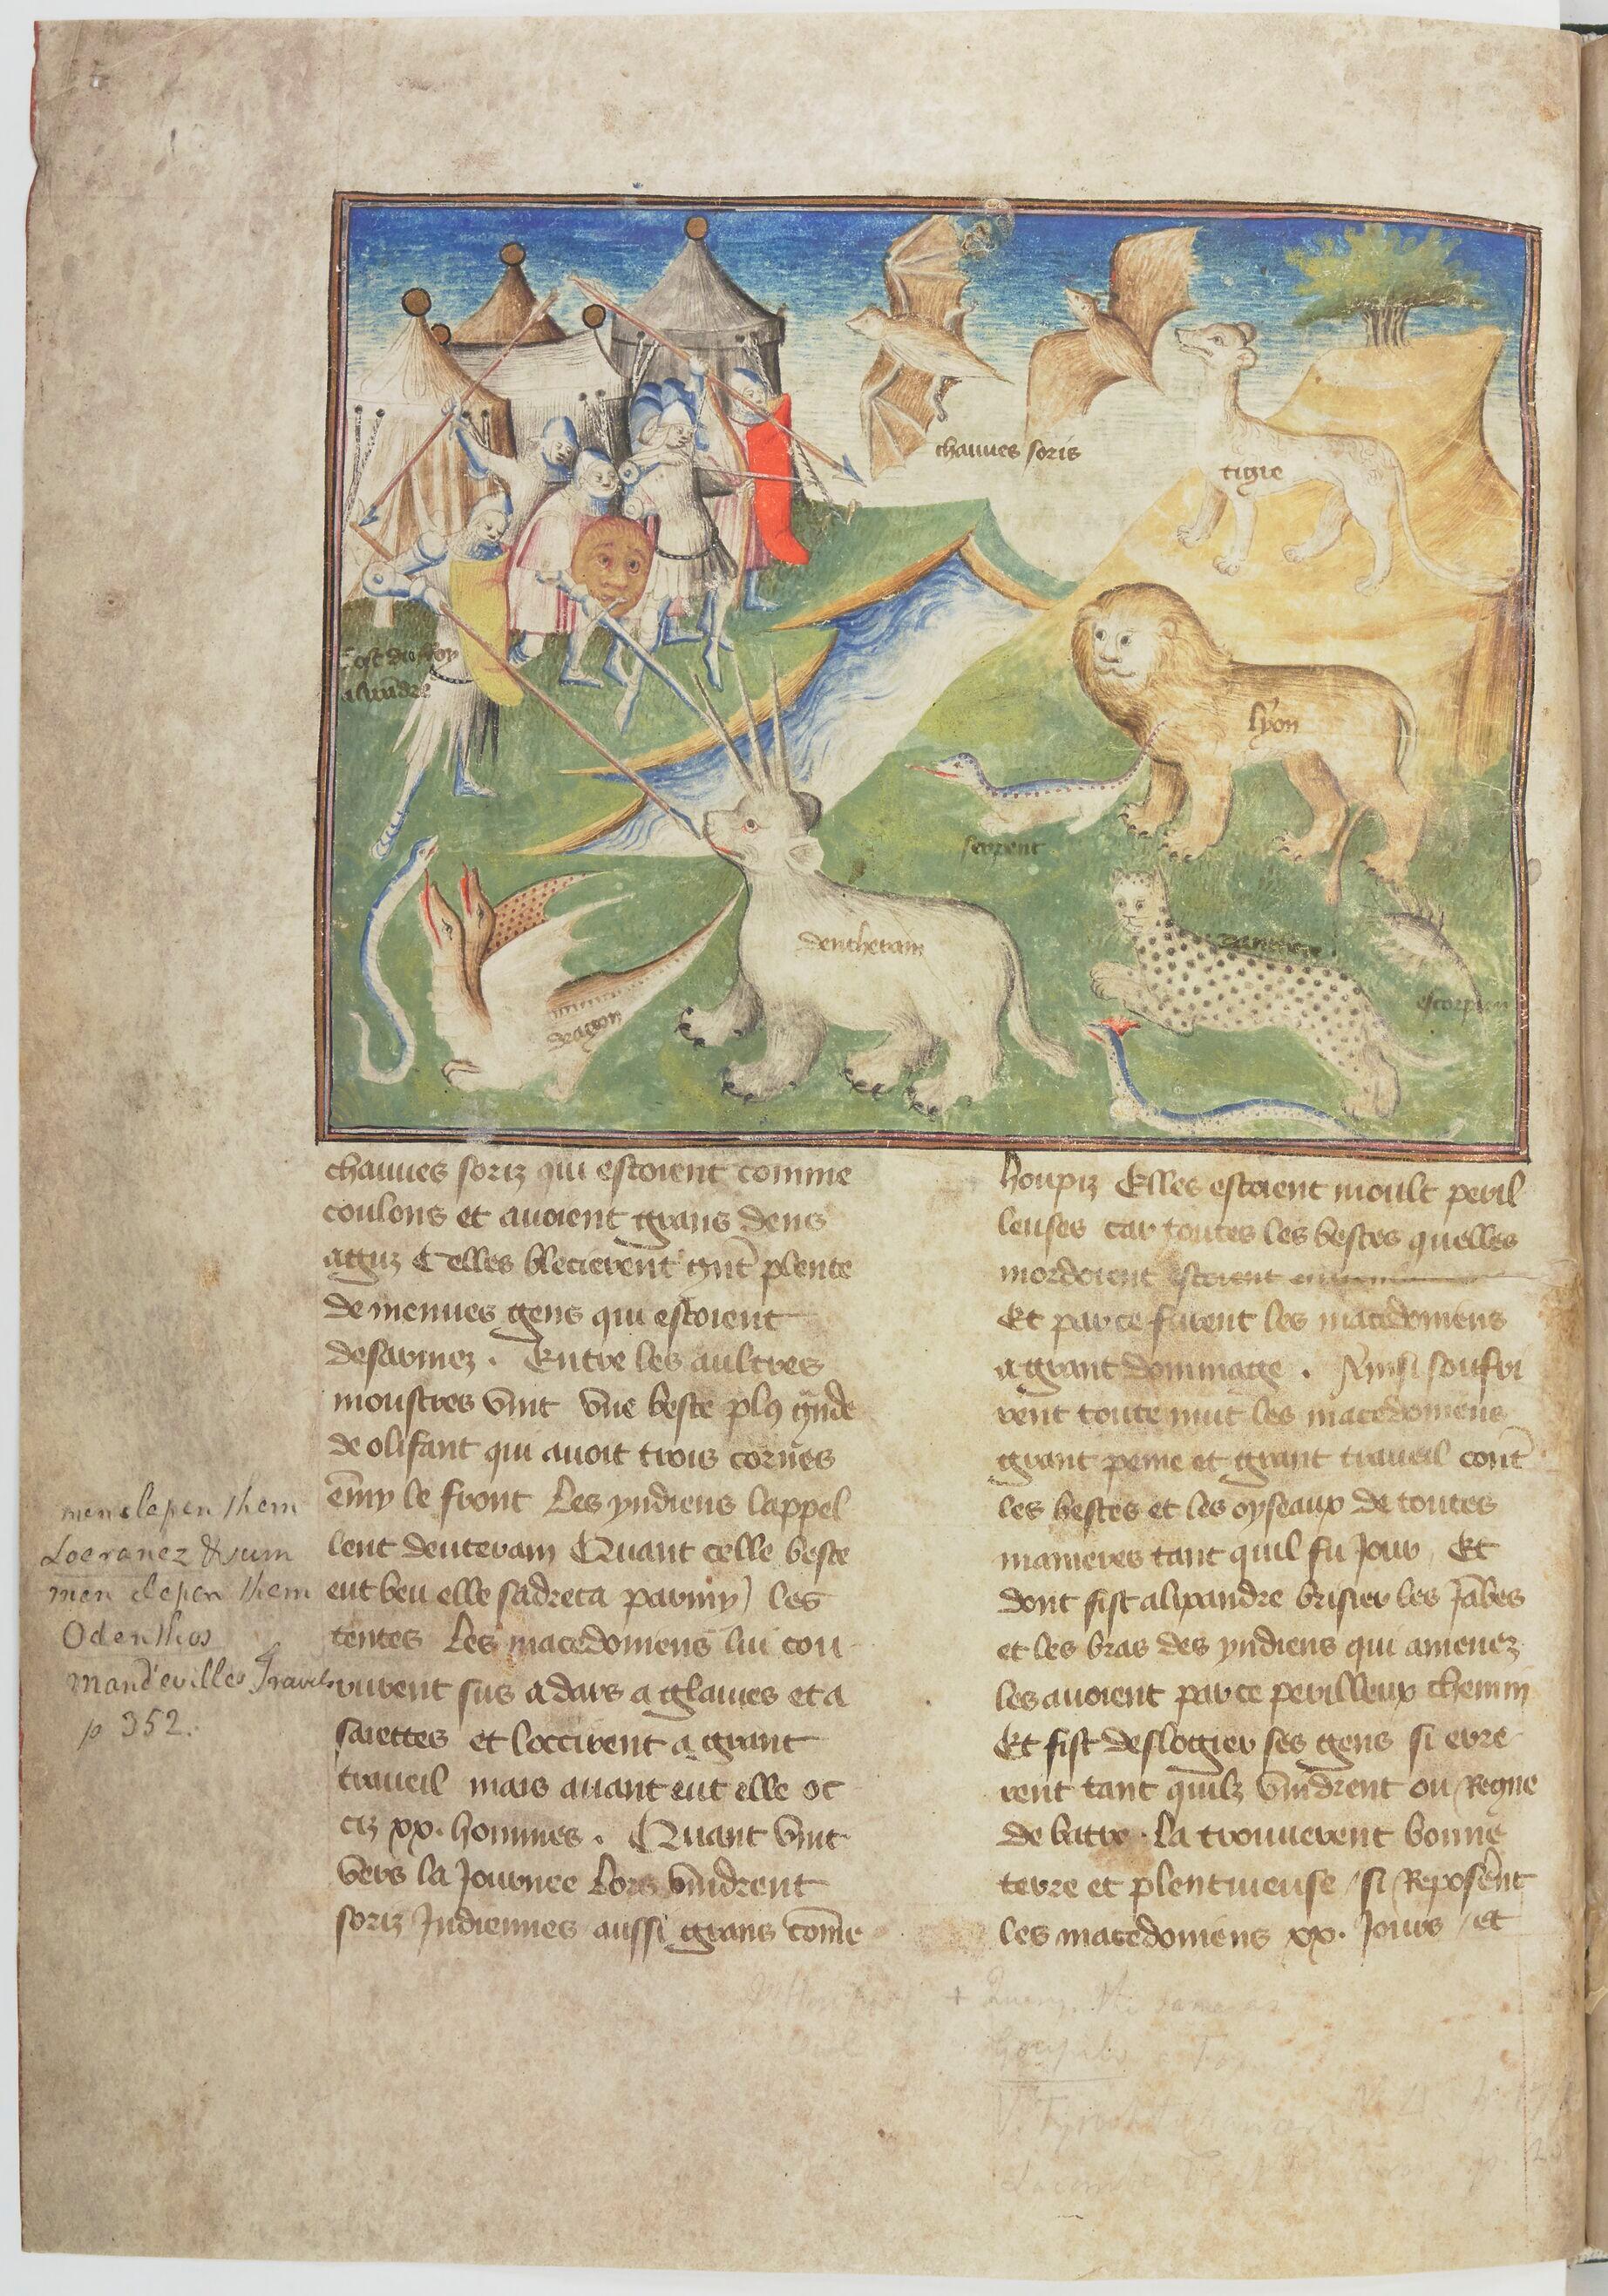 chauues soris
tigre
lost du roy
alixandre
lyon
serpent
dentheram
panthere
dragon
escorpion
chauues soriz qui estoient comme
coulons et auoient grans dens
aguz Celles blecierent gnt plente
de menues gens qui estoient
desarmez . Entre les aultres
monstres vint vne beste plus gnde
de olifant qui auoit trois cornes
emy le front Les yndiens lappel
lent deuteram Quant celle beste
eut beu elle sadreca parmy les
tentes Les macedoniens lui cou
rurent sus a dars a glaiues et a
saiettes et loccirent a grant
traueil mais auant eut elle oc
ciz xx. hommes . Quant vint
vers la Journee Lors vindrent
soriz Indiennes aussi grans come
houpiz Elles estoient moult peril
leuses car toutes les bestes quelles
mordoient estoient
Et par ce furent les macedoniens
a grant dommage . Ainsi soufri
rent toute nuit les macedoniens
grant peine et grant traueil cont
les bestes et les oyseaux de toutes
manieres tant quil fu Jour Et
dont fist alixandre brisier les Jabes
et les bras des yndiens qui amenez
les auoient par ce perilleux chemin
Et fist deslogier ses gens si erre
rent tant quilz vindrent ou Regne
de batre . La trouuerent bonne
terre et plentiueuse / si Reposent
les macedoniens xx. Jours / et
men clepen them
Loeranez & sum
men clepen them
Odenthos
Mandevilles Travels
p 352.
+ Query. the same as